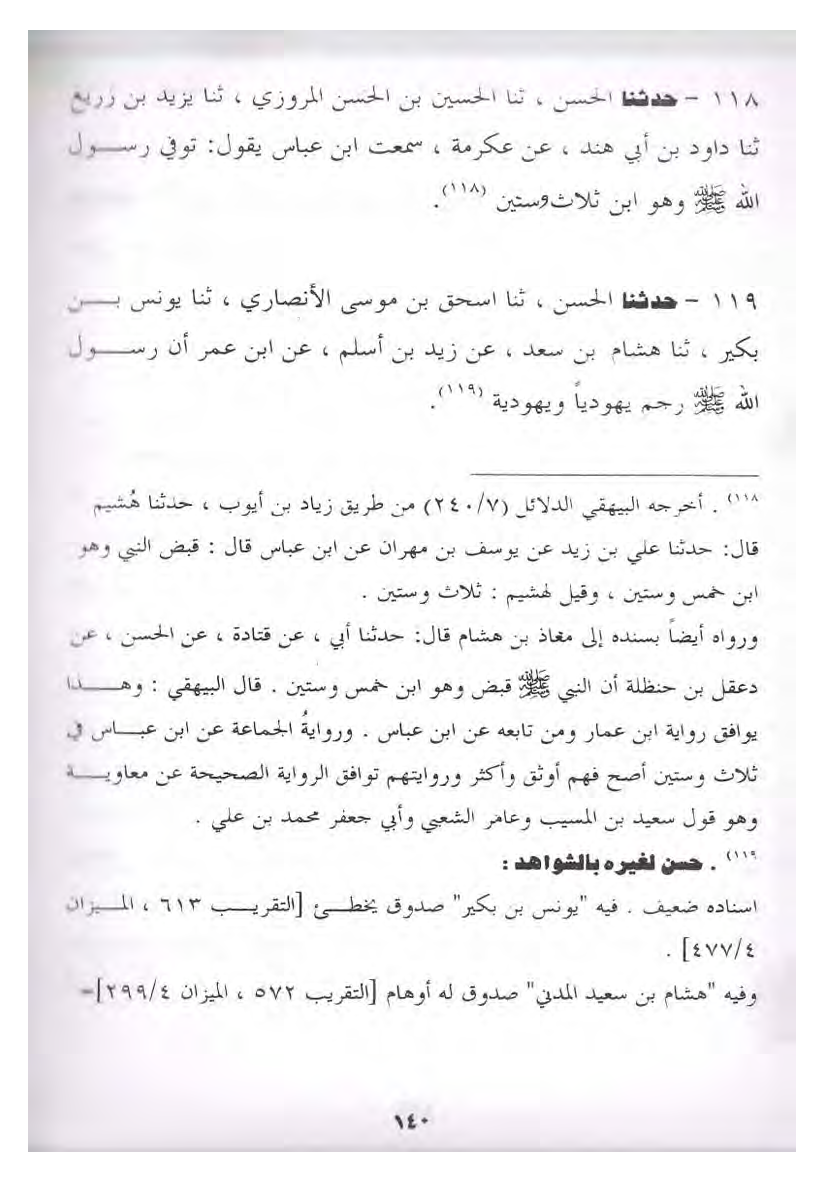 ١١٨ – حدثنا الحسن ، ثنا الحسين بن الحسن المروزي ، ثنا يزيد بن زريع
ثنا داود بن أبي هند ، عن عكرمة ، سمعت ابن عباس يقول: توفي رســول
الله ﷺ وهو ابن ثلاث وستين (١١٨).
١١٩ – حدثنا الحسن ، ثنا اسحق بن موسى الأنصاري ، ثنا يونس بـــن
بكير ، ثنا هشام بن سعد ، عن زيد بن أسلم ، عن ابن عمر أن رســـول
الله ﷺ رجم يهودياً ويهودية (١١٩).
(١١٨) . أخرجه البيهقي الدلائل (٢٤٠/٧) من طريق زياد بن أيوب ، حدثنا هُشيم
قال: حدثنا علي بن زيد عن يوسف بن مهران عن ابن عباس قال : قبض النبي وهو
ابن خمس وستين ، وقيل لهشيم : ثلاث وستين .
ورواه أيضاً بسنده إلى معاذ بن هشام قال: حدثنا أبي ، عن قتادة ، عن الحسن ، عن
دعقل بن حنظلة أن النبي ﷺ قبض وهو ابن خمس وستين . قال البيهقي : وهـــذا
يوافق رواية ابن عمار ومن تابعه عن ابن عباس . وروايةُ الجماعة عن ابن عبـــاس في
ثلاث وستين أصح فهم أوثق وأكثر وروايتهم توافق الرواية الصحيحة عن معاويـــة
وهو قول سعيد بن المسيب وعامر الشعبي وأبي جعفر محمد بن علي .
(١١٩) . حسن لغيره بالشواهد :
اسناده ضعيف . فيه "يونس بن بكير" صدوق يخطــئ [التقريــب ٦١٣ ، المــيزان
٤٧٧/٤] .
وفيه "هشام بن سعيد المدني" صدوق له أوهام [التقريب ٥٧٢ ، الميزان ٢٩٩/٤]–
١٤٠